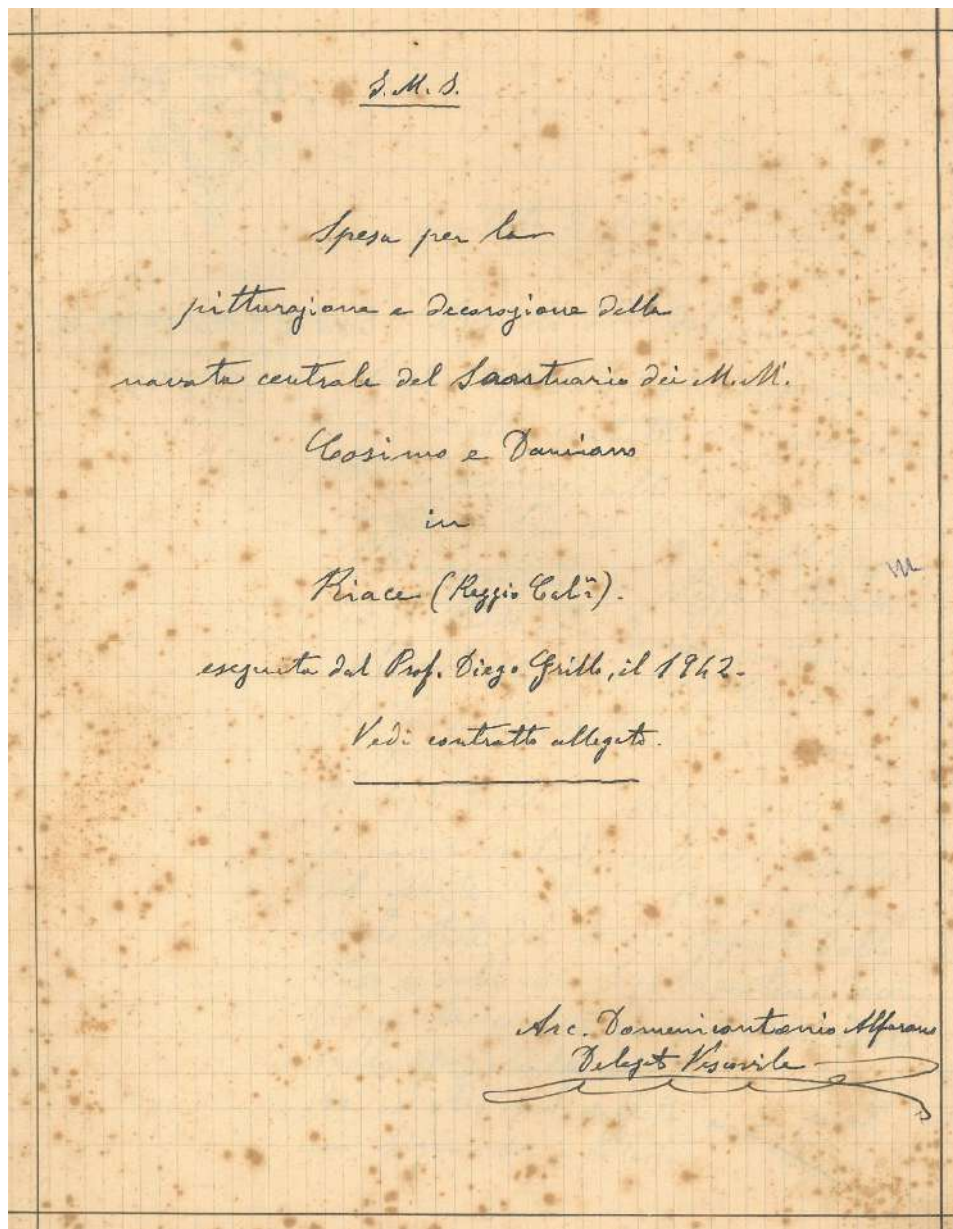 J. M. J.
Spesa per la
pitturazione e decorazione della
navata centrale del Santuario dei M.M.
Cosimo e Damiano
in
Riace (Reggio Cal.).
eseguita dal Prof. Diego Grillo, il 1942.
Vedi contratto allegato.
Arc. Domenicantonio Alfarano
Delegato Vescovile